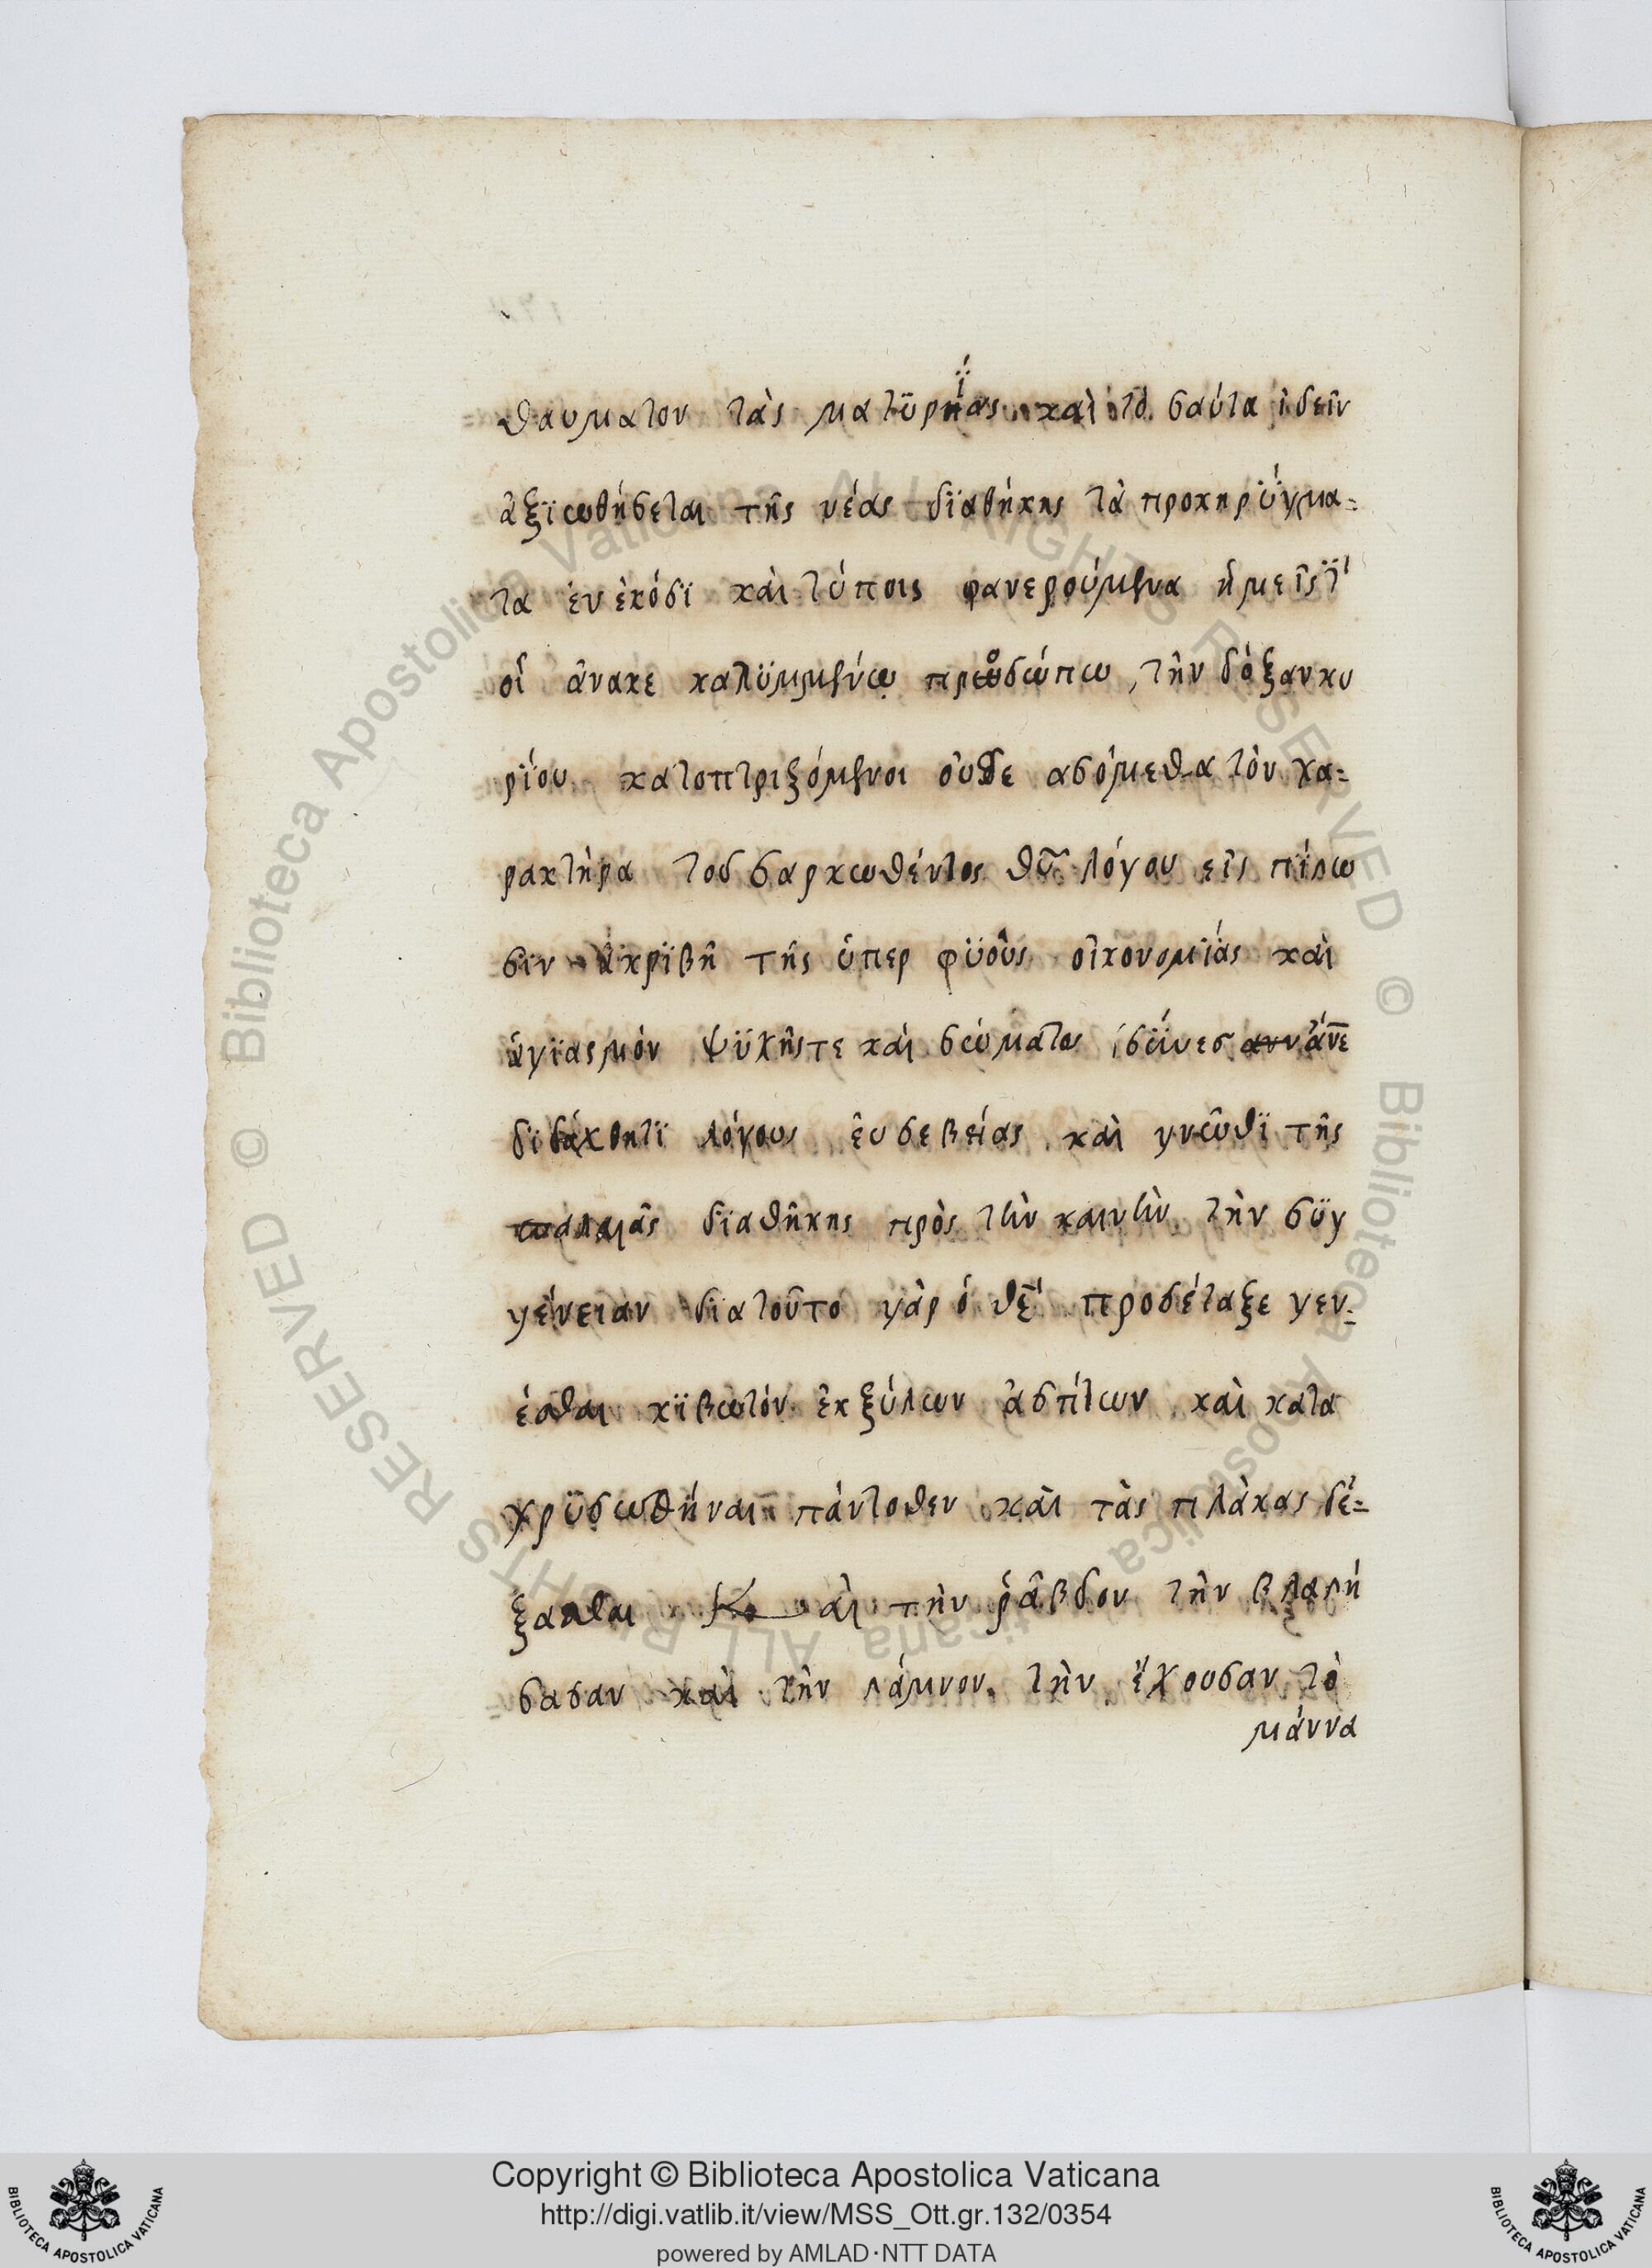 θαυματον τὰς ματϋρΐας καὶ τὸ σαύτα ἰδεῖν
ἀξϊωθήσεται τῆς νέας δϊαθήκης τὰ προκηρΰγμα=
τα ἐν ἐκόσϊ καὶ τύποις φανερούμενα ἡμεῖς
οἱ ἂνακε καλϋμμένῳ προσώπω, τὴν δόξαν κυ
ρΐου κατοπτριξόμενοι ασόμεθα τὸν χα=
ρακτὴρα τοῦ σαρκωθέντος θῦ λόγου εἰς πΐςω
σιν ἀκρϊβῆ τῆς ὑπερ φϋοῦς οἰκονομΐας καὶ
ἁγϊασμὸν ψϋχῆς τε καὶ σώματος
λόγους ἐυσεβείας καὶ γνῶθϊ τῆς
παλαιᾶς δϊαθῆκης πρὸς τὴν καινὴν τὴν σϋγ
γένειαν δϊατοῦτο γὰρ ὁ θς προσέταξε γεν=
έσθαι κϊβωτόν ἐκ ξύλων ἀσπίτων καὶ κατα
χρϋσωθήναι πάντοθεν καὶ τὰς πλάκας δέ=
ξασθαι καὶ τὴν ῥάβδον τὴν βλαςή
σασαν καὶ τὴν ςάμνον τὴν ἔχουσαν τὸ
μάννα
Copyright © Biblioteca Apostolica Vaticana
http://digi.vatlib.it/view/MSS_Ott.gr.132/0354
powered by AMLAD·NTT DATA
BIBLIOTECA APOSTOLICA VATICANA
BIBLIOTECA APOSTOLICA VATICANA